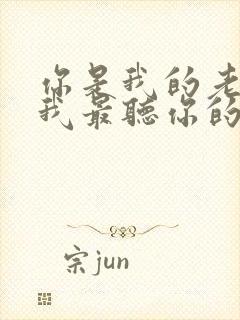 你是我的老
我最聽你的
宗jun